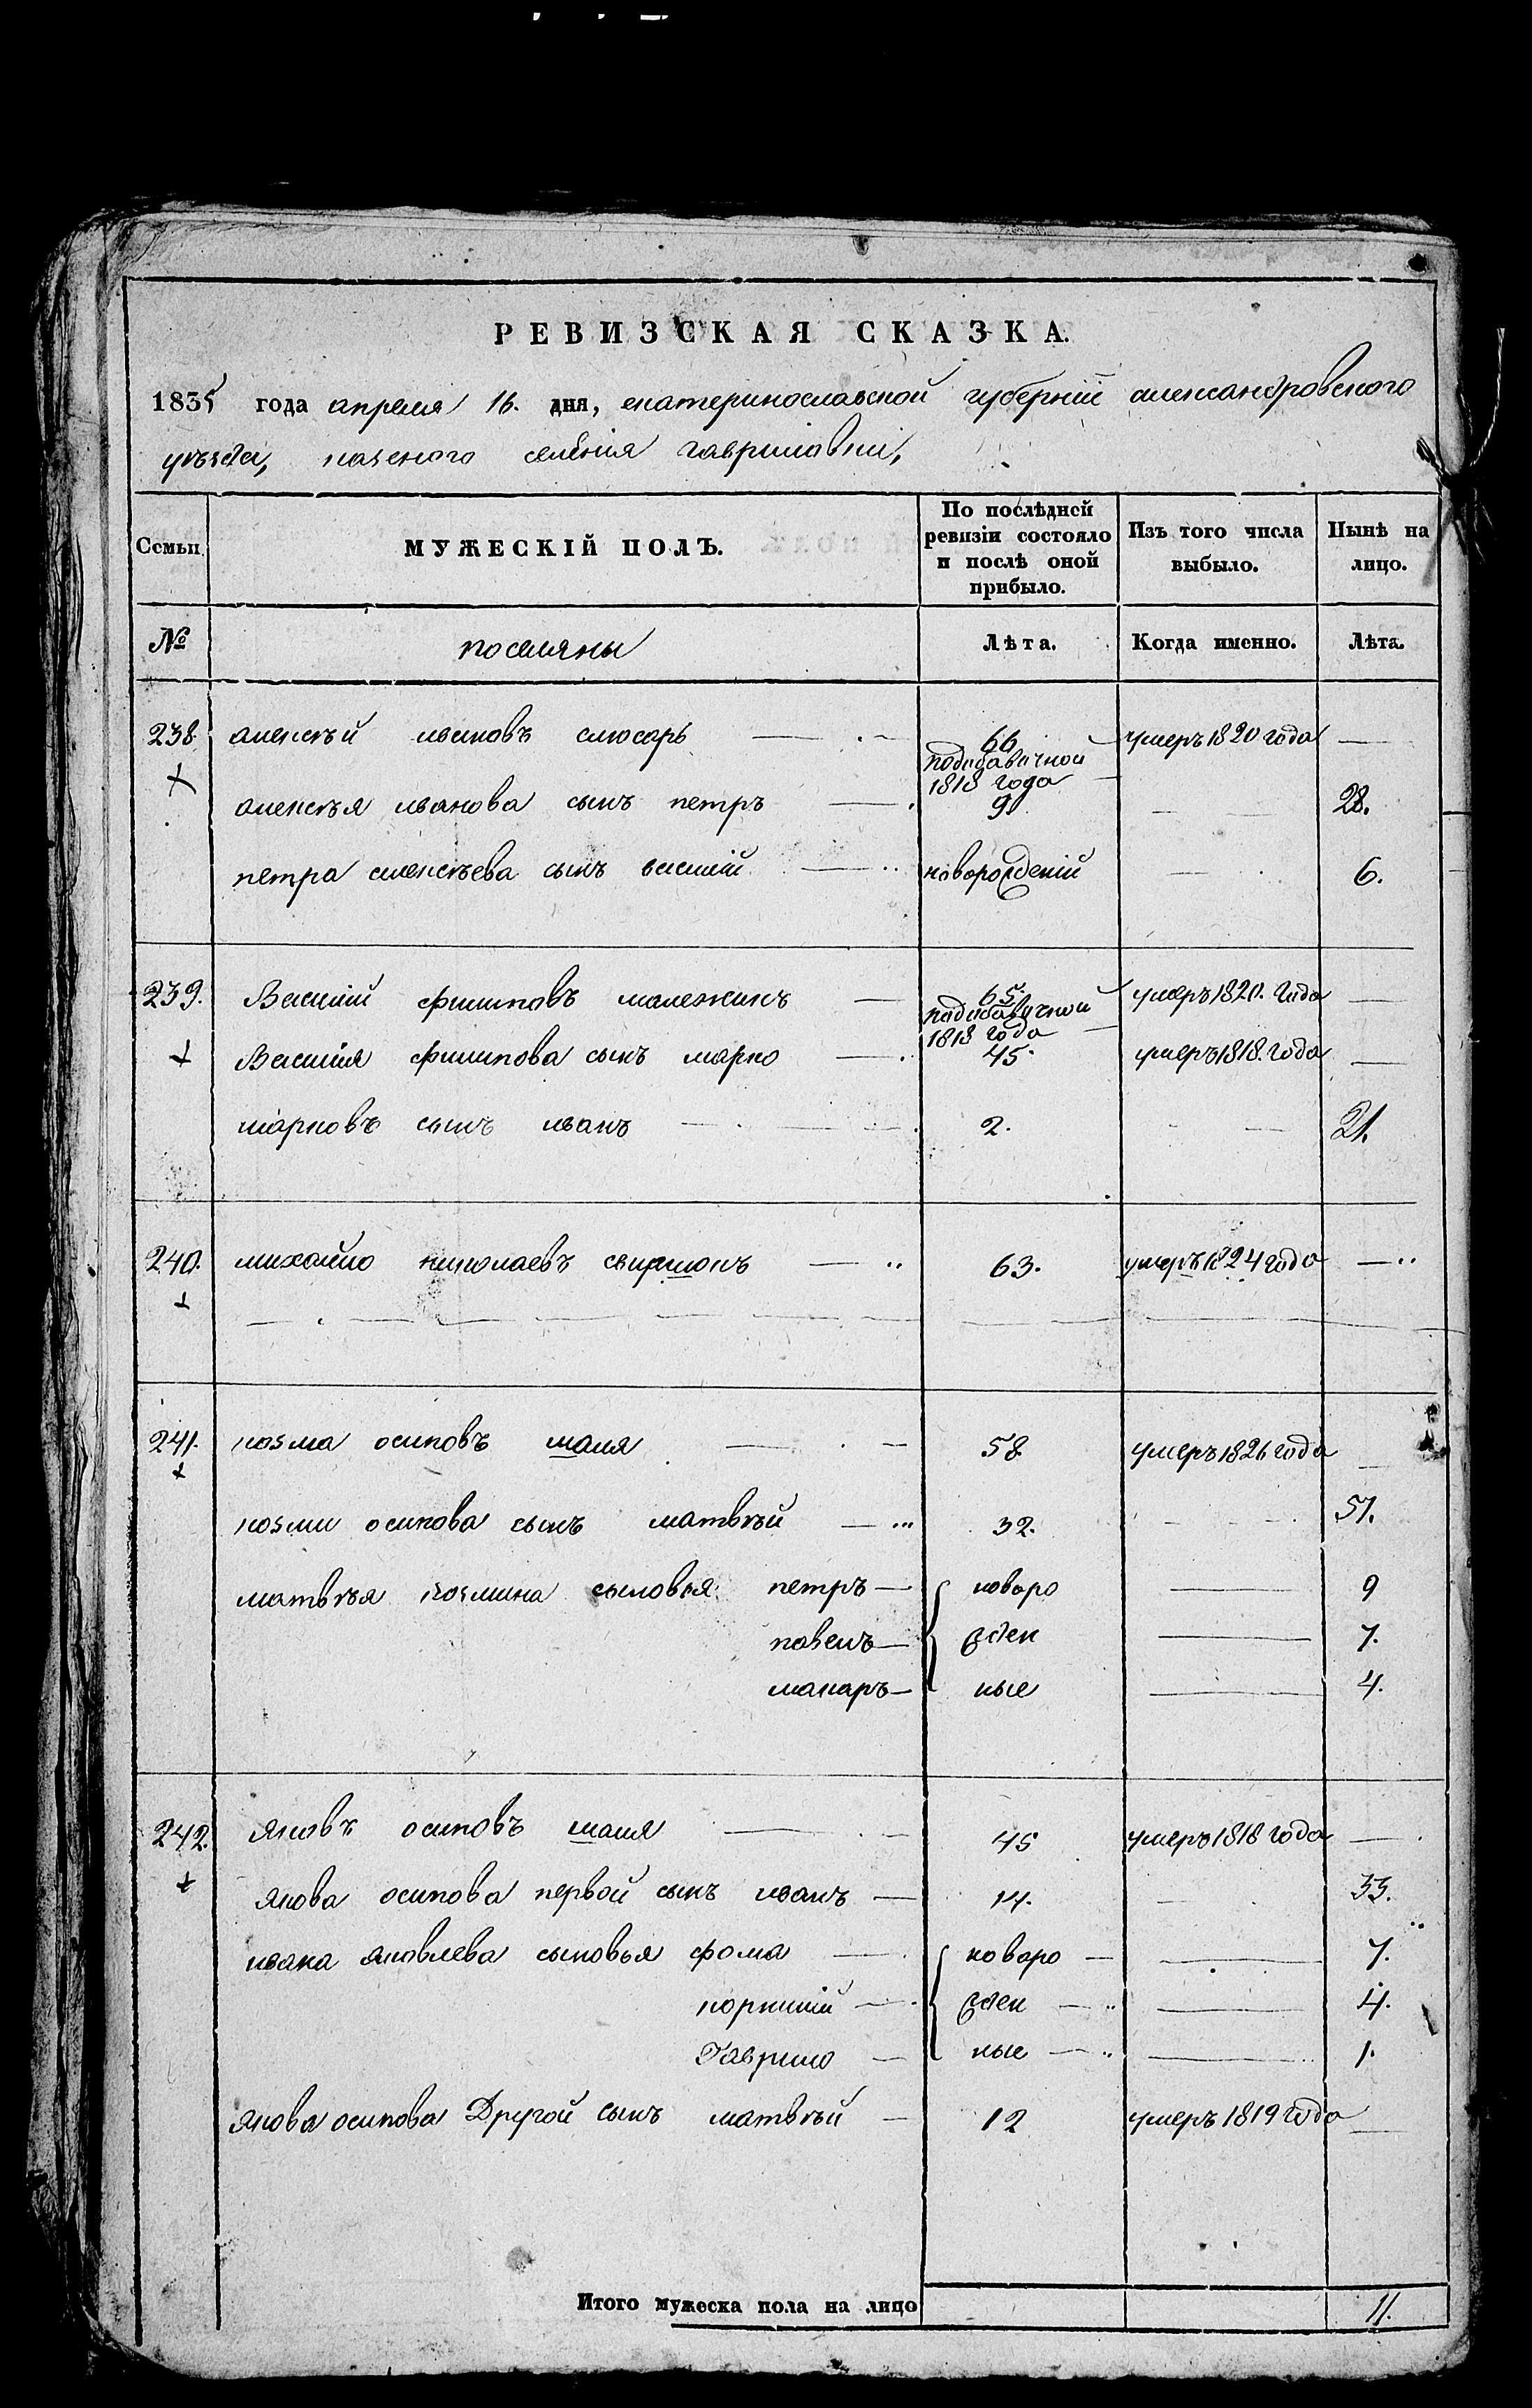 РЕВИЗСКАЯ СКАЗКА.
1835 года апреля 16. дня, екатеринославской губерніи александровского
уѣзда, казеного селенія гавриловки,
Семьи.
МУЖЕСКІЙ ПОЛЪ.
По послѣдней ревизіи состояло и послѣ оной прибыло.
Изъ того числа выбыло.
Нынѣ на лицо.
№ поселяны Лѣта. Когда именно. Лѣта.
238. алексѣй ивановъ слюсарь 66 умеръ 1820 года —
подобавочной
1818 года
алексѣя иванова сынъ петръ 9 — 28.
петра алексѣева сынъ василій новорожденій — 6.
239. Василій филиповъ 65. умеръ 1820. года —
подобавочной
1818 года
Василія филипова сынъ марко 45. умеръ 1818. года —
марковъ сынъ иванъ 2. — 21.
240. михайло николаевъ 63. умеръ 1824 года —
241. козма осиповъ шаля 58. умеръ 1826 года —
козми осипова сынъ матвѣй 32. 51.
матвѣя козмина сыновья петръ — новоро — 9
павелъ — жден — 7.
макаръ — ные — 4.
242. яковъ осиповъ шаля 45 умеръ 1818 года —
якова осипова первой сынъ иванъ — 14. — 33.
ивана яковлева сыновья фома — новоро — 7.
корнилій — жден — 4.
Гаврило — ные — 1.
якова осипова Другой сынъ матвѣй — 12 умеръ 1819 года —
Итого мужеска пола на лицо 11.